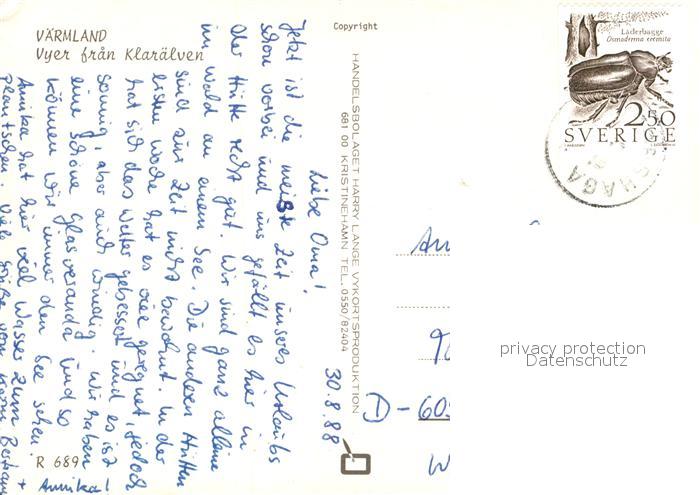 VÄRMLAND
Vyer från Klarälven
Copyright
Läderbagge
Osmoderma eremita
2.50
SVERIGE
GHAGA
HANDELSBOLAGET HARRY LANGE VYKORTSPRODUKTION
681 00 KRISTINEHAMN TEL. 0550/82404
30.8.88
Liebe Oma!
Jetzt ist die meiste Zeit unseres Urlaubs
schon vorbei und uns gefällt es hier in
der Hütte recht gut. Wir sind ganz alleine
im Wald an einem See. Die anderen Hütten
sind zur Zeit nicht bewohnt. In der
letzten Woche hat es viel geregnet, jedoch
hat sich das Wetter gebessert und es ist
sonnig, aber auch windig. Wir haben
eine schöne Glasveranda und so
können wir immer den See sehen.
Annika hat hier viel Wasser zum
Plantschen. Viele Grüße von
+ Annika!
R 689
An
D-60
W
privacy protection
Datenschutz